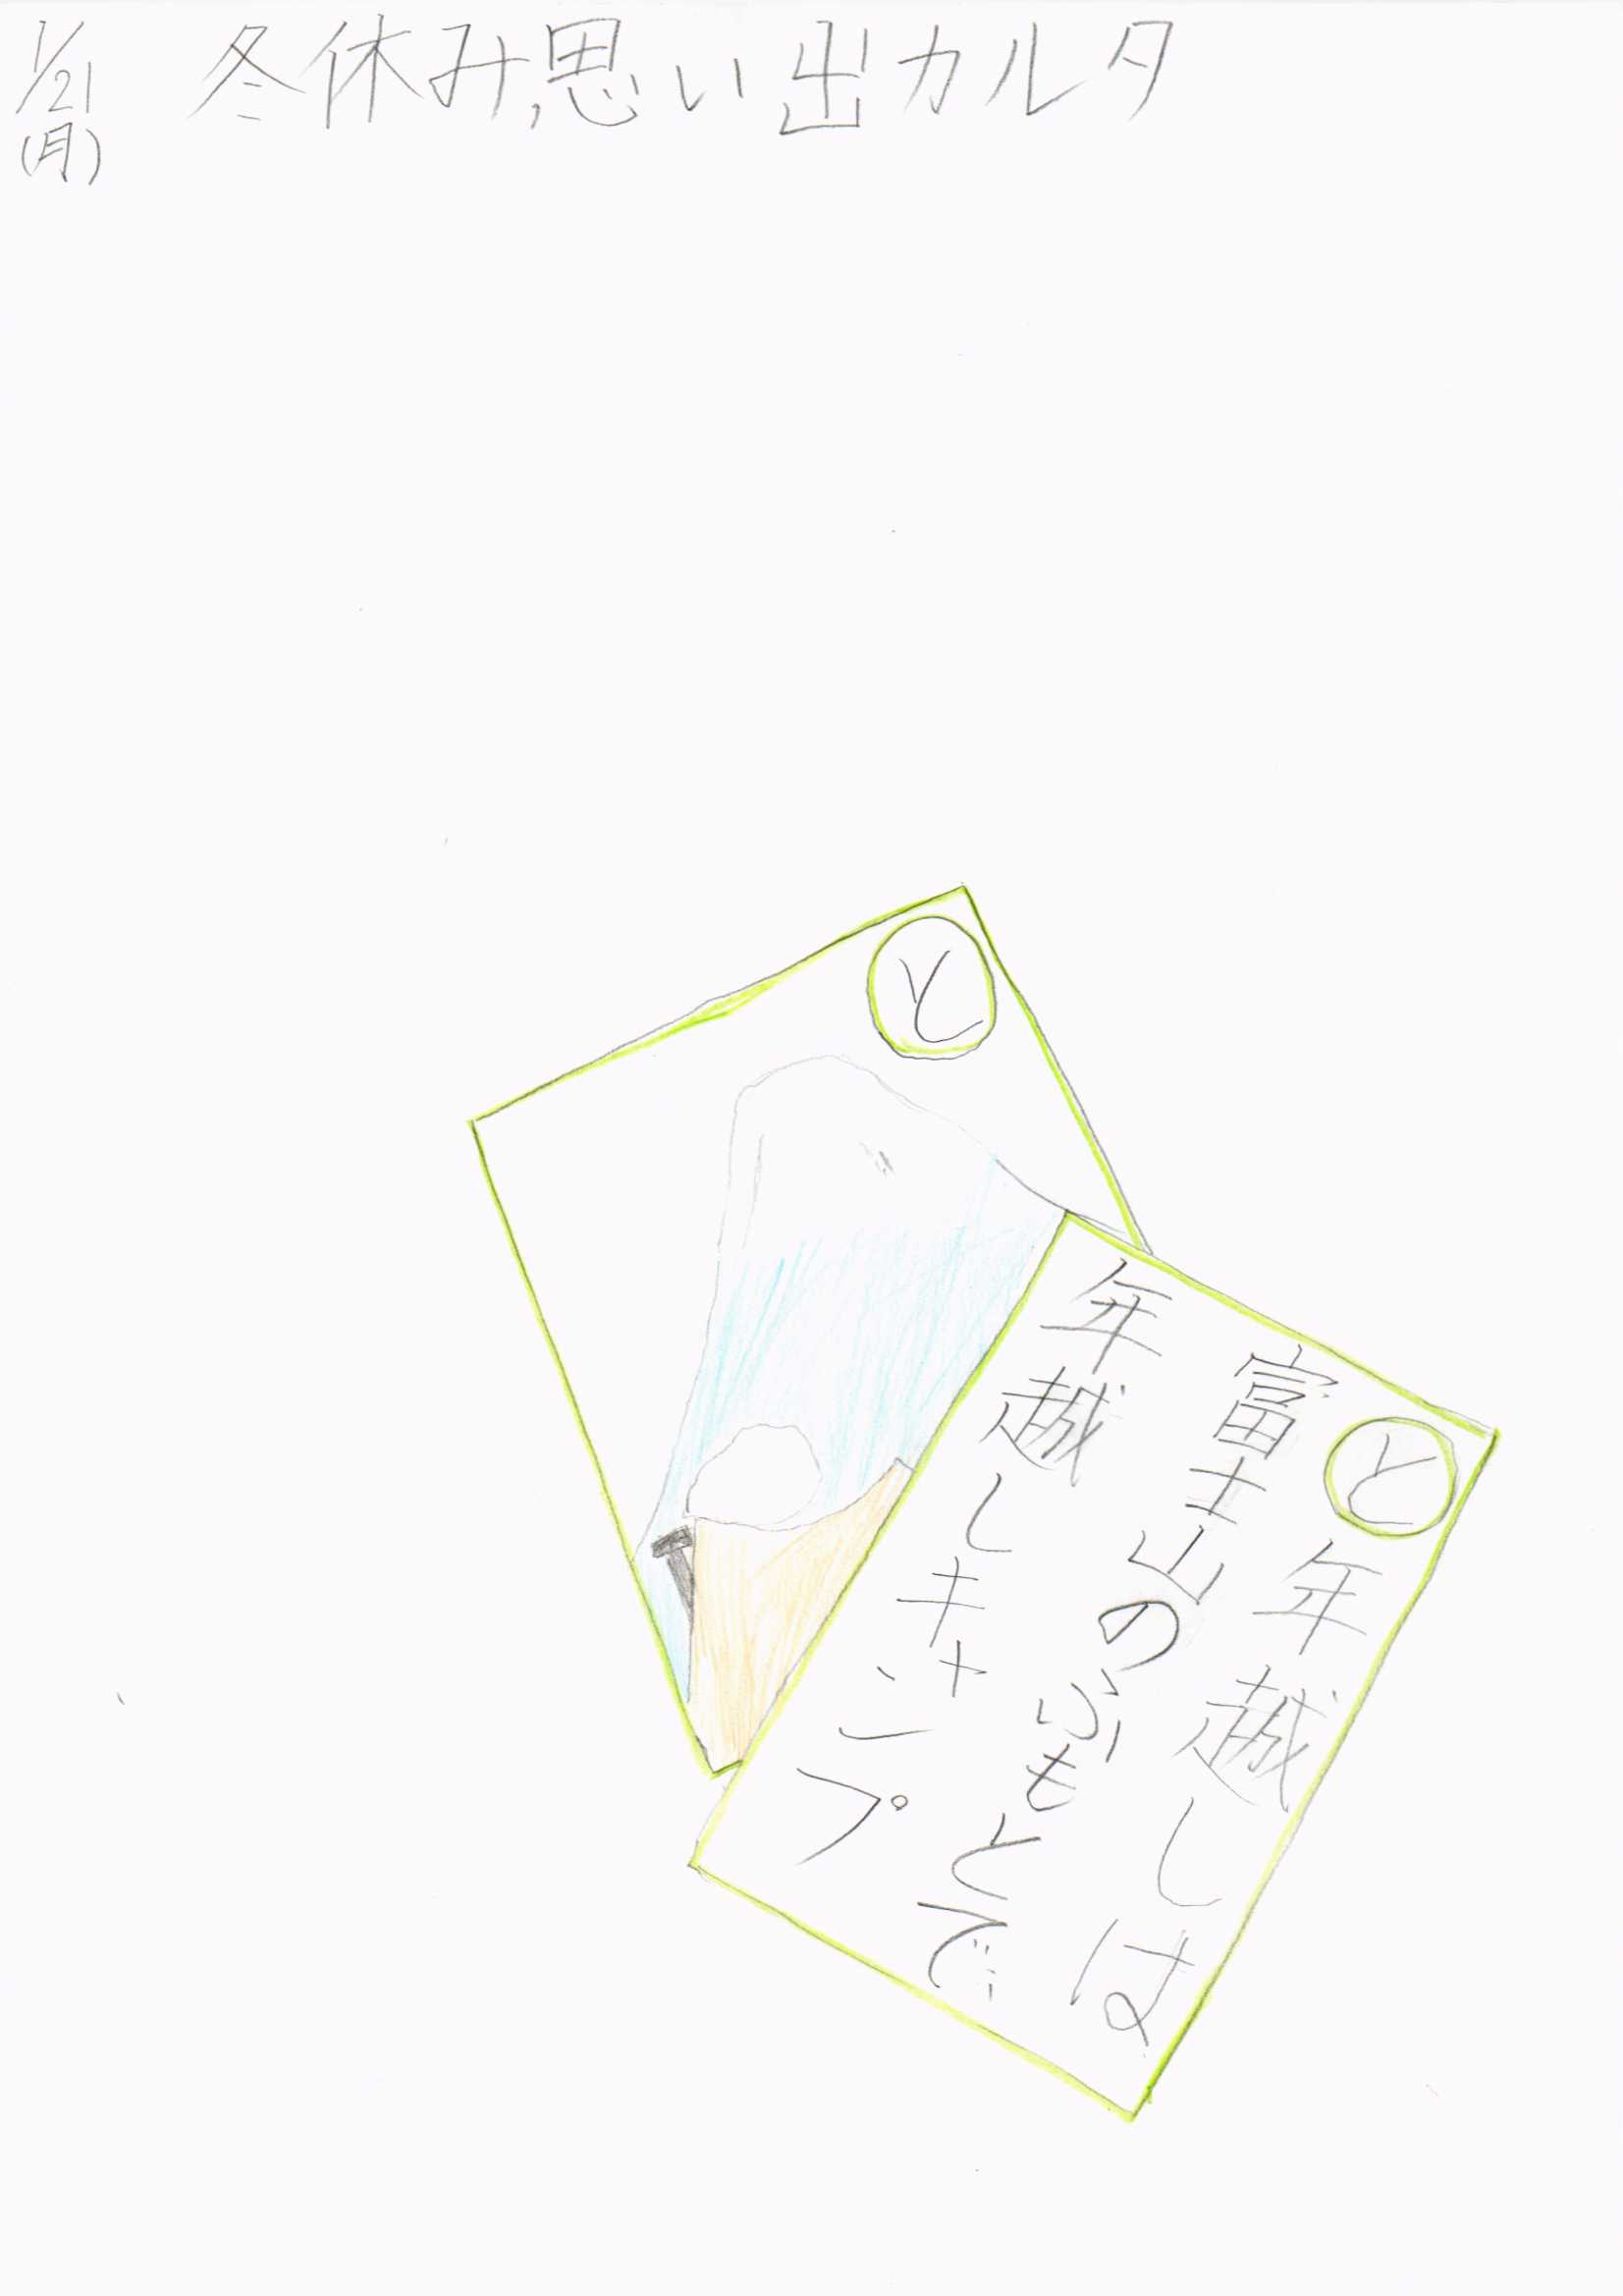 1/21
(月)
冬休み思い出カルタ
と
と
年越しは
富士山のふもとで
年越しキャンプ